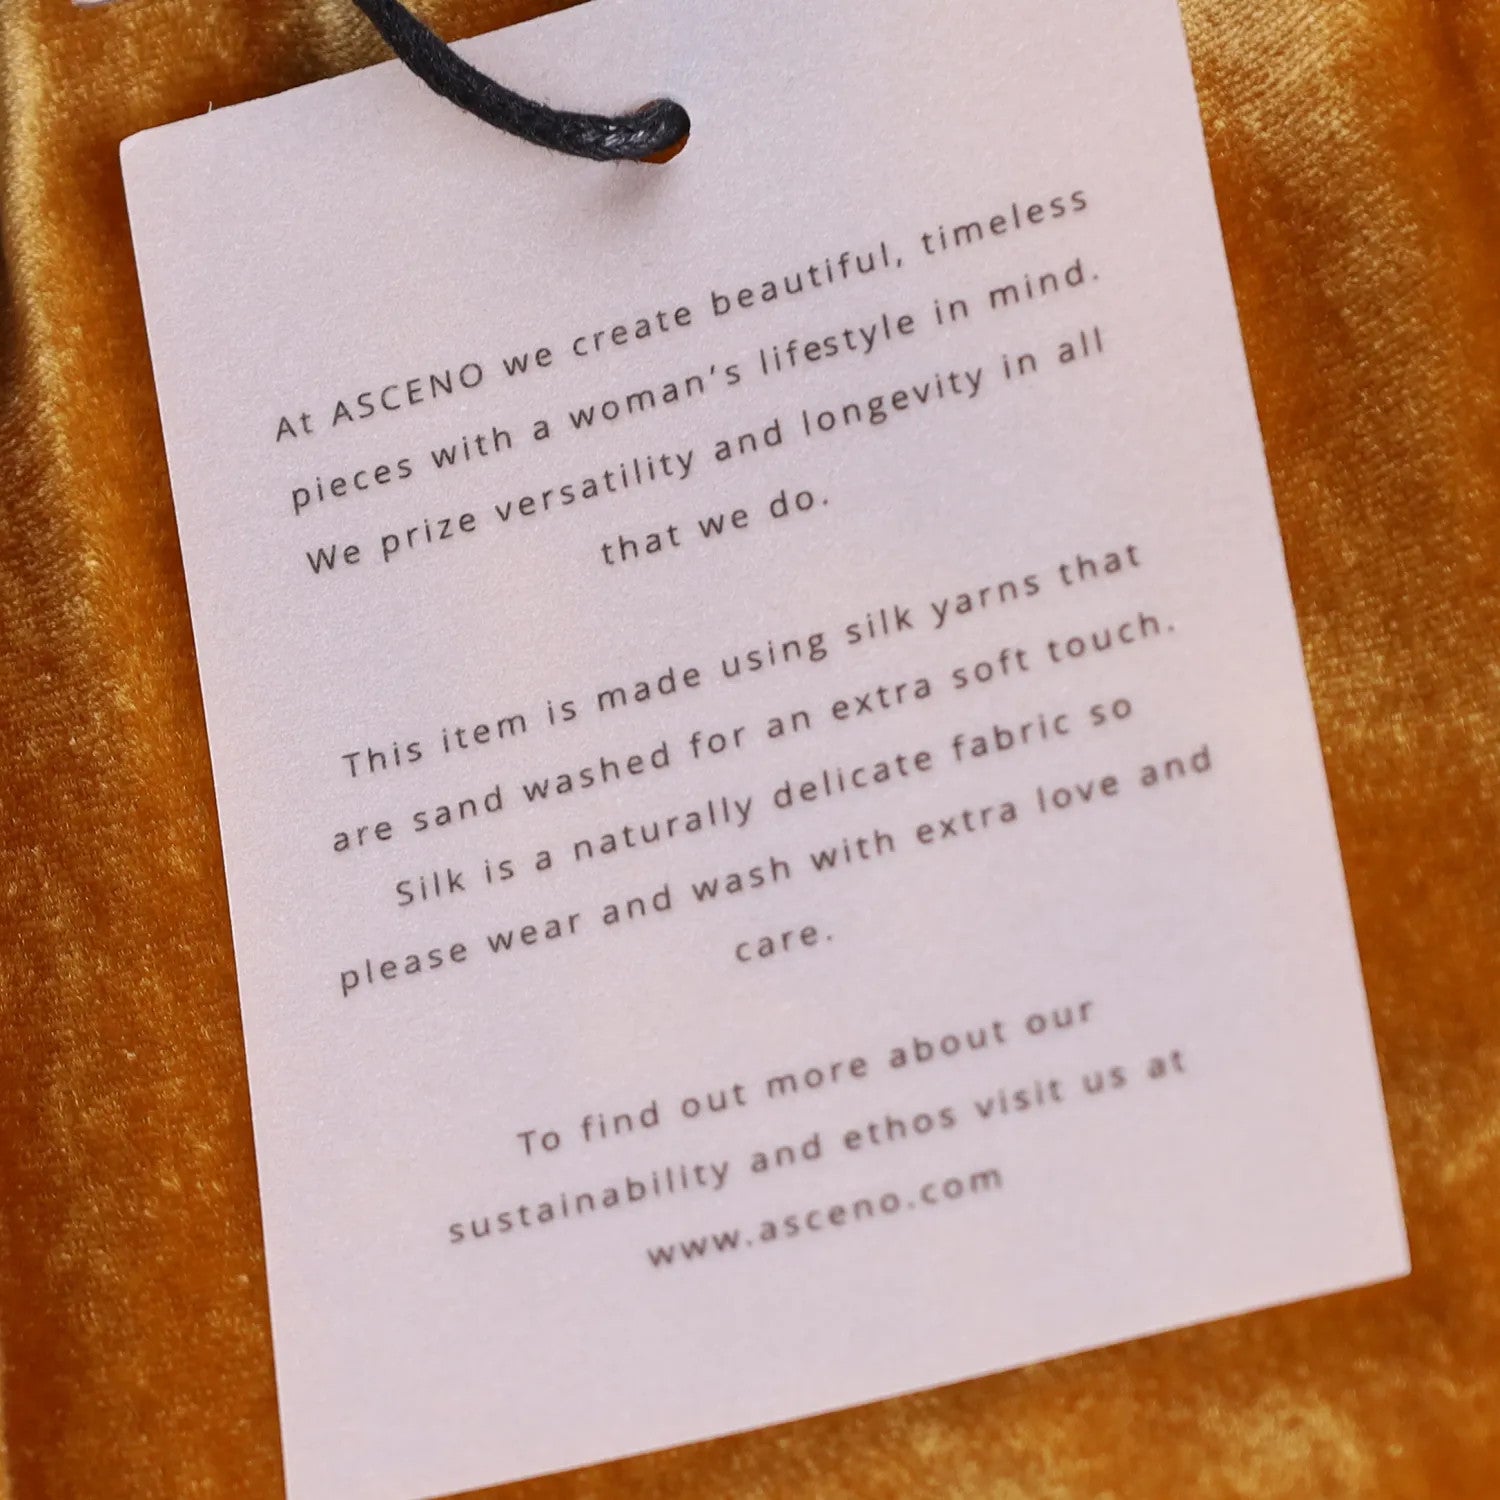 At ASCENO we create beautiful, timeless
pieces with a woman's lifestyle in mind.
We prize versatility and longevity in all
that we do.
This item is made using silk yarns that
are sand washed for an extra soft touch.
Silk is a naturally delicate fabric so
please wear and wash with extra love and
care.
To find out more about our
sustainability and ethos visit us at
www.asceno.com